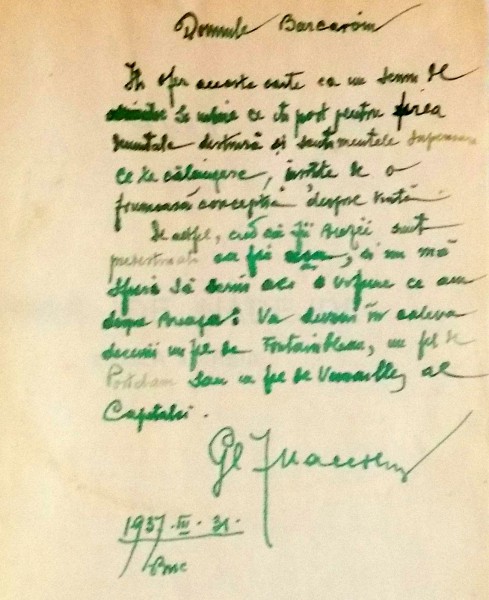 Domnule Barcaroiu
Îți ofer aceasta carte ca un semn de
iubire ce îți port pentru firea
dumitale distinsă și sentimentele superioare
ce te călăuzesc, însoțite de o
frumoasă concepție despre viată.
De astfel, cred că fii Breazei sunt
așa, și nu mă
sfiesc să scriu aci o viziune ce am
despre Breaza: Va deveni în câteva
decenii un fel de Fontainbleau, un fel de
Postdam sau un fel de Versailles al
Capitalei.
Gl
1937. III. 31.
Buc